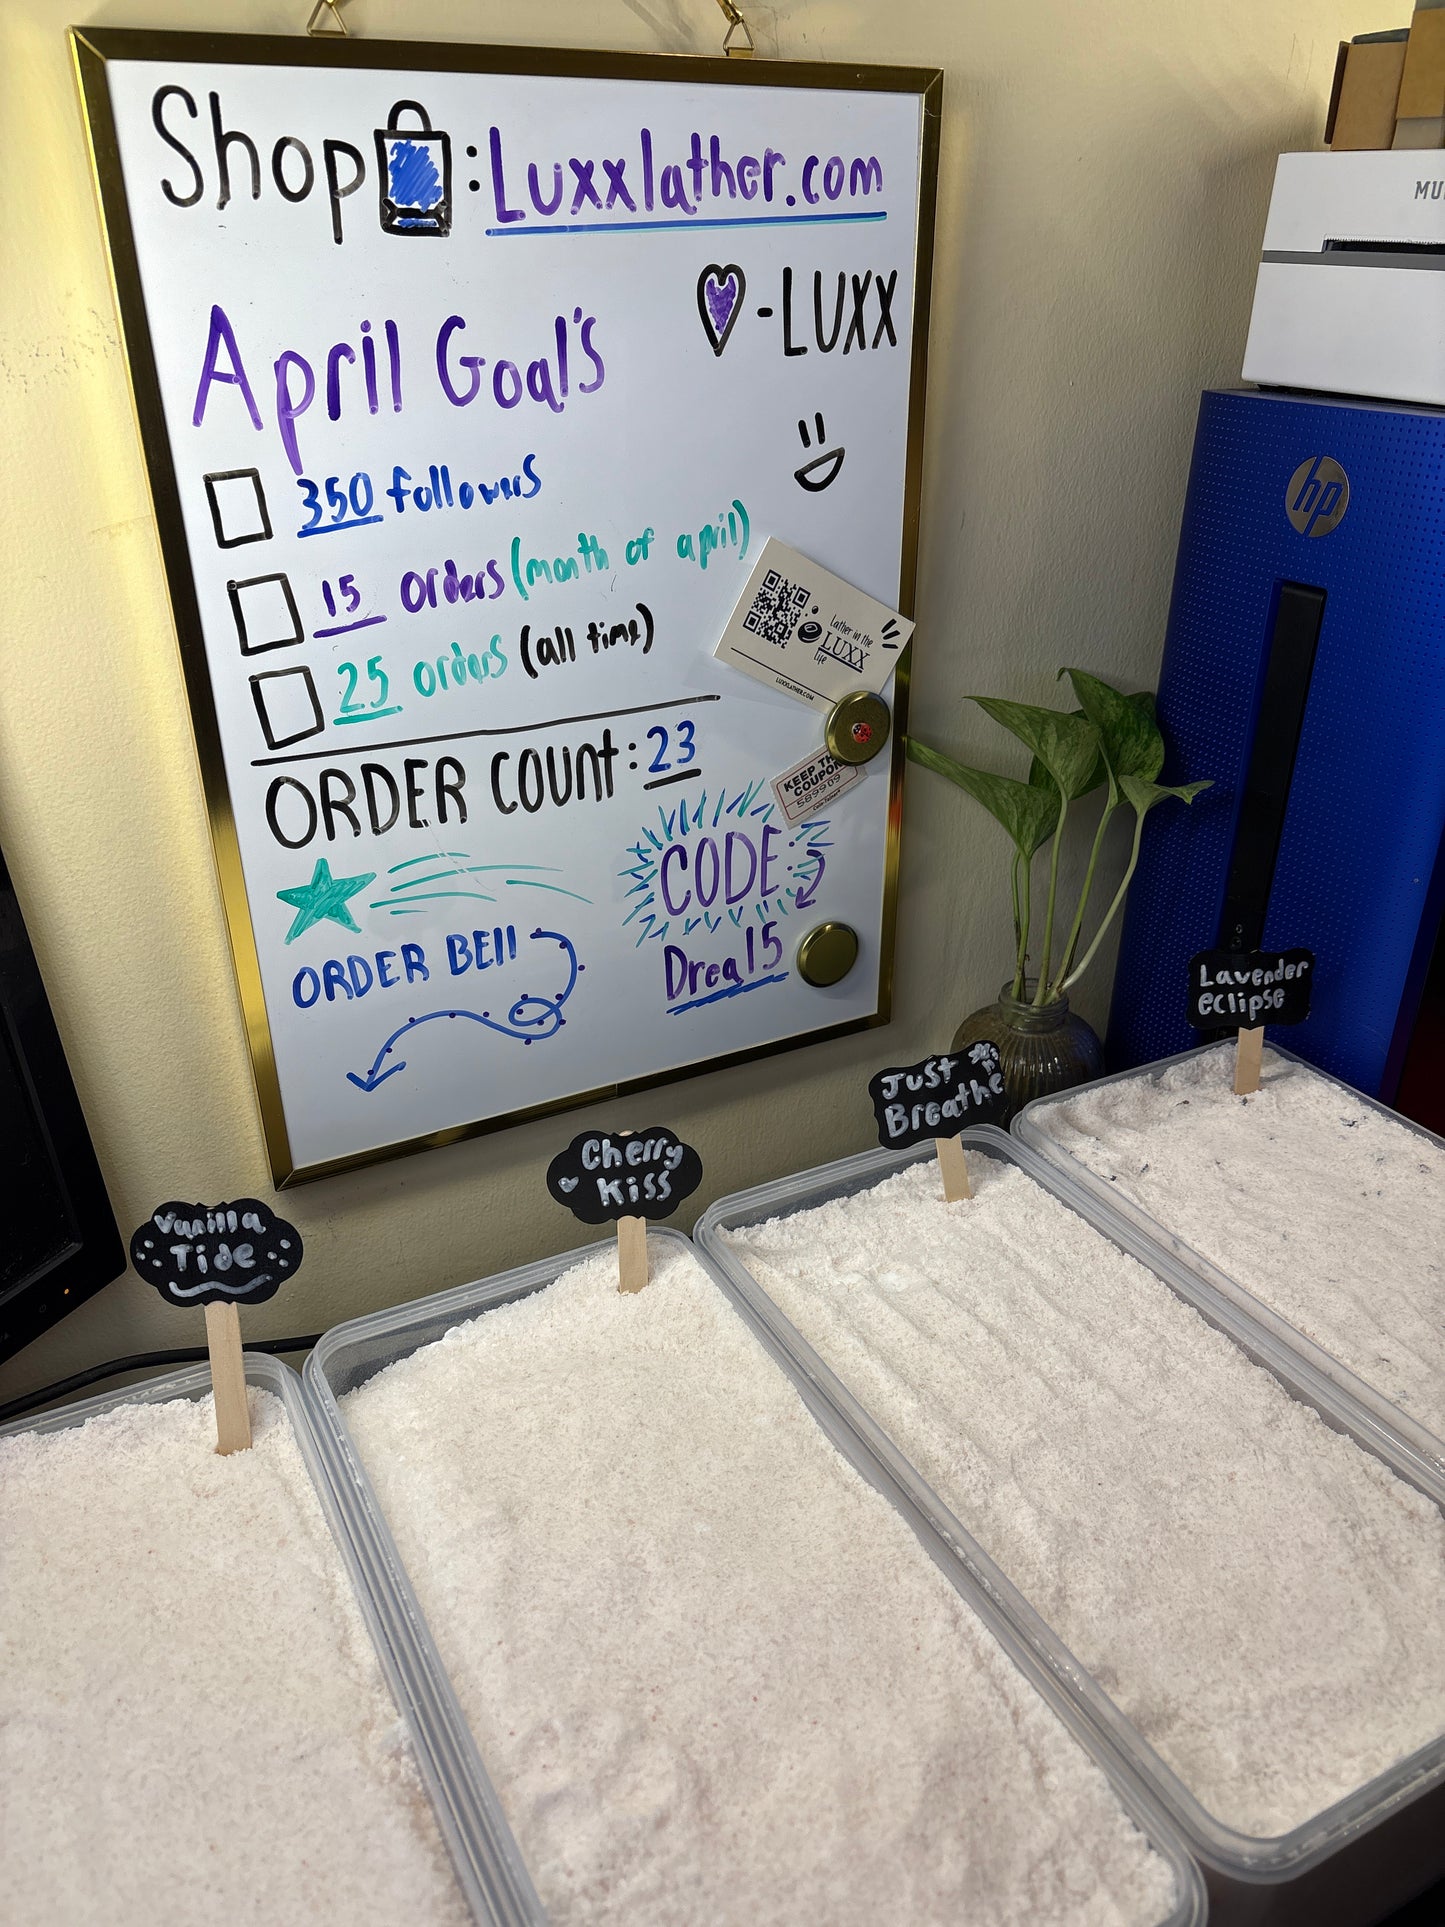 Shop : Luxxlather.com
- LUXX
April Goal's
350 followers
15 orders (month of april)
25 orders (all time)
ORDER COUNt: 23
CODE:
Drea15
ORDER BEll
Lather in the
LUXX
life
LUXXLATHER.COM
KEEP TH
COUPON
589909
hp
MU
Lavender
eclipse
Just
Breathe
Cherry
Kiss
Vanilla
Tide